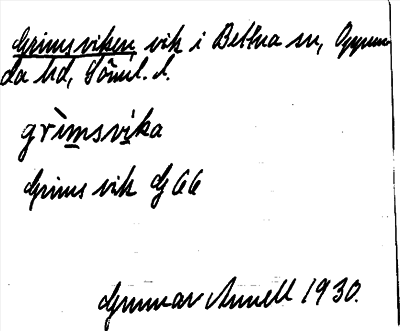 Grimsviken vik i Bettna sn, Oppun-
da hd, Söml. l.
grìmsvika
Grims vik G 66
Gunnar Annell 1930.